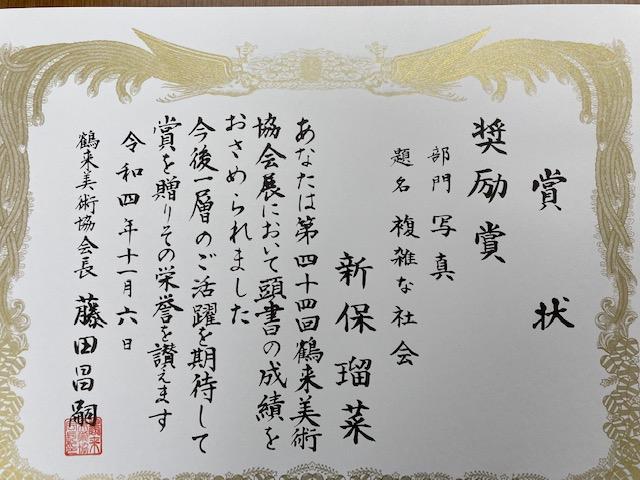 賞状
奨励賞
部門 写真
題名 複雑な社会
新保瑠菜
あなたは第四十四回鶴来美術
協会展において頭書の成績を
おさめられました
今後一層のご活躍を期待して
賞を贈りその栄誉を讃えます
令和四年十一月六日
鶴来美術協会長 藤田昌嗣